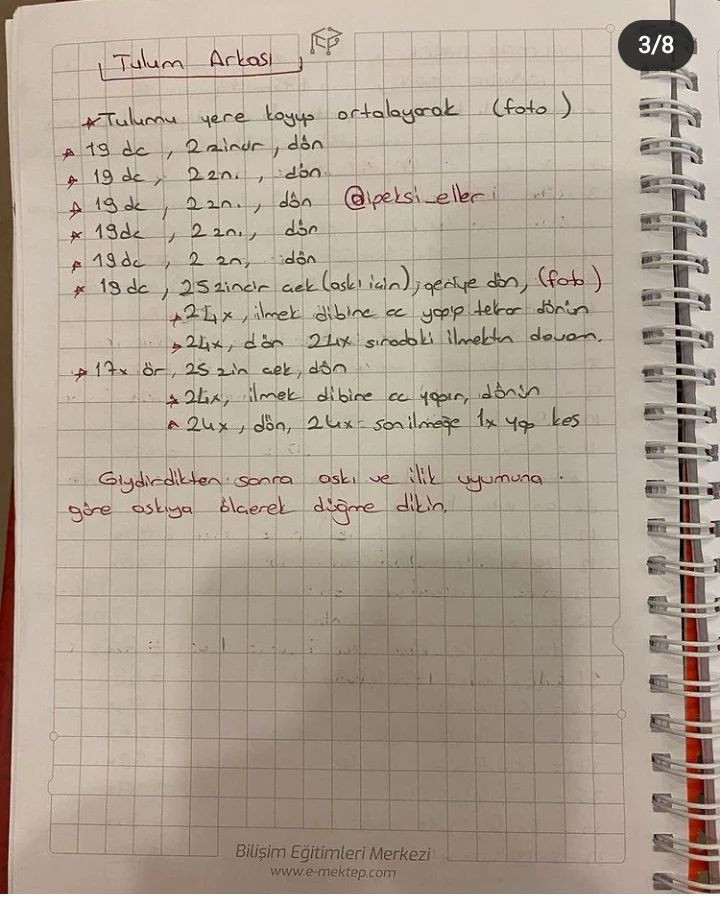 3/8
Tulum Arkası
Tulumu yere koyup ortalayarak (foto)
19 dc, 2 zincir, dön
19 dc, 2 zn., dön
19 dc, 2 zn., dön @ipeksi_eller
19 dc, 2 zn., dön
19 dc, 2 zn, dön
19 dc, 25 zincir çek (askı için), geriye dön, (foto)
24x, ilmek dibine cc yapıp tekrar dönün
24x, dön 24x sıradaki ilmekten devam.
17x ör, 25 zin çek, dön
24x, ilmek dibine cc yapın, dönün
24x, dön, 24x son ilmeğe 1x yap kes
Giydirdikten sonra askı ve ilik uyumuna
göre askıya ölçerek düğme dikin.
Bilişim Eğitimleri Merkezi
www.e-mektep.com